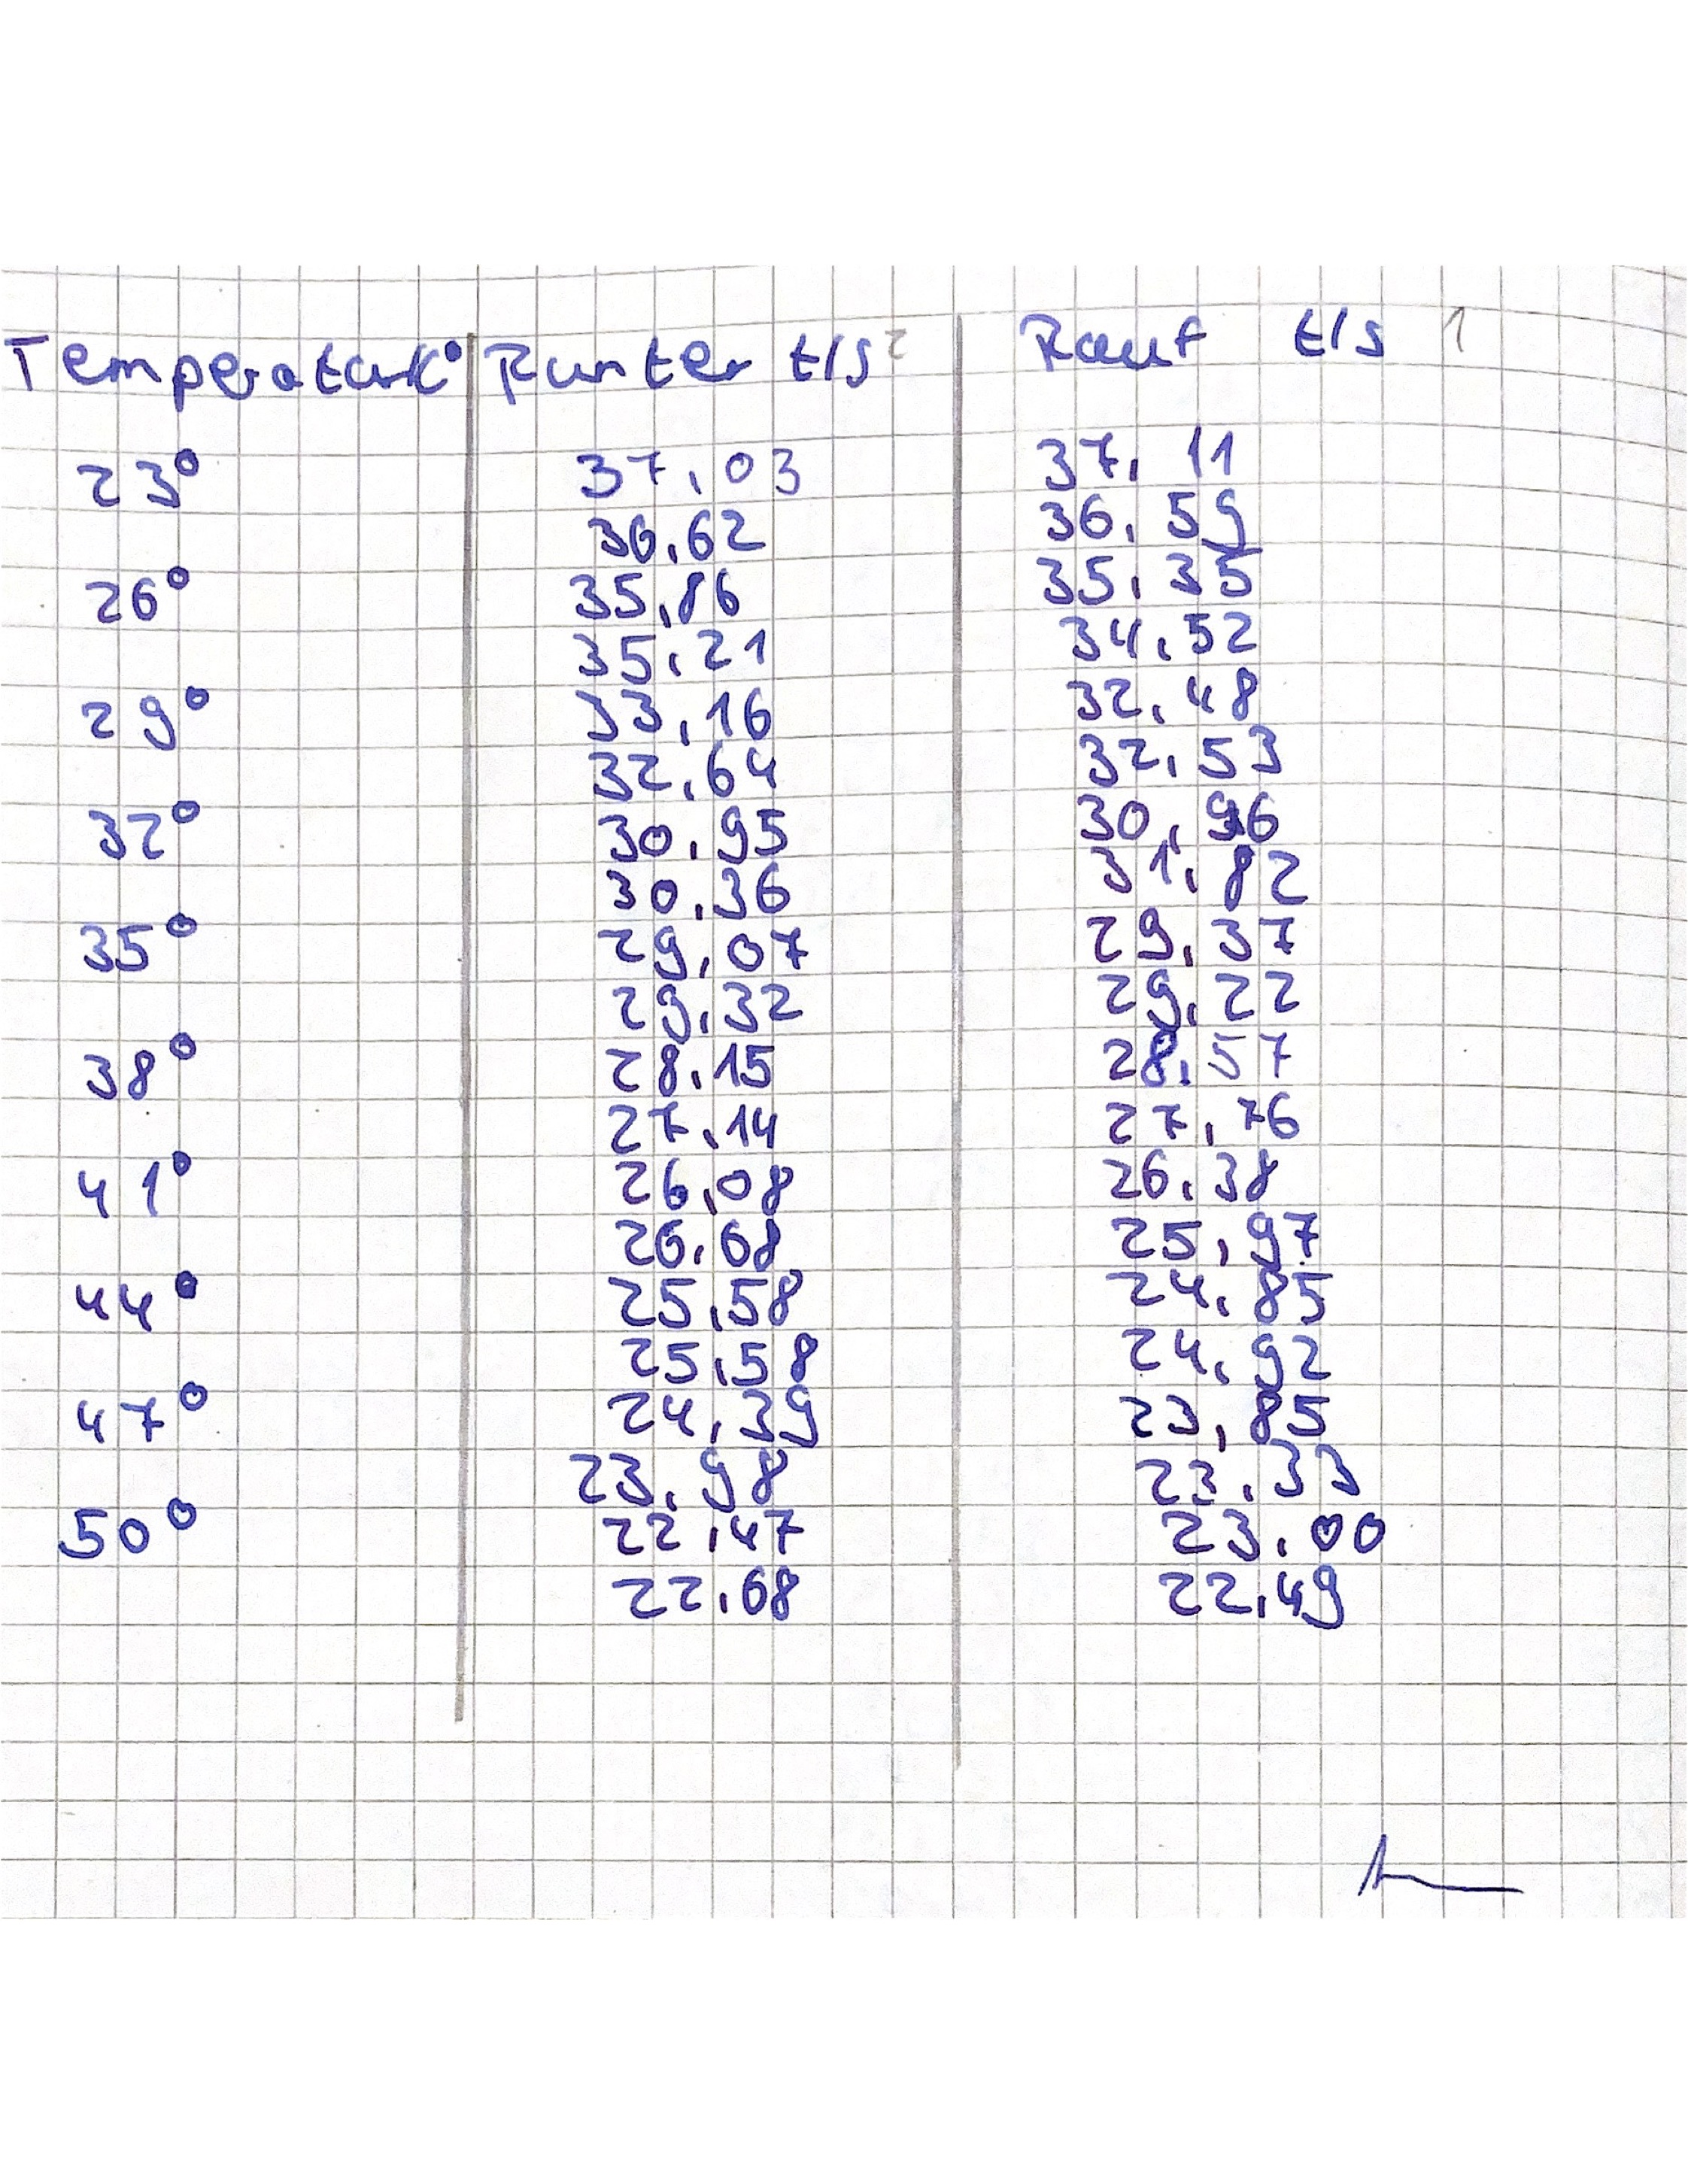 Temperatur C° Runter t/s 2 Rauf t/s 1
23° 37.03 37.11
36.62 36.59
26° 35.86 35.35
35.21 34.52
29° 33.16 32.48
32.64 32.53
32° 30.95 30.96
30.36 31.82
35° 29.07 29.37
29.32 29.22
38° 28.15 28.57
27.14 27.76
41° 26.08 26.38
26.08 25.97
44° 25.58 24.85
25.58 24.92
47° 24.39 23.85
23.98 23.33
50° 22.47 23.00
22.68 22.49